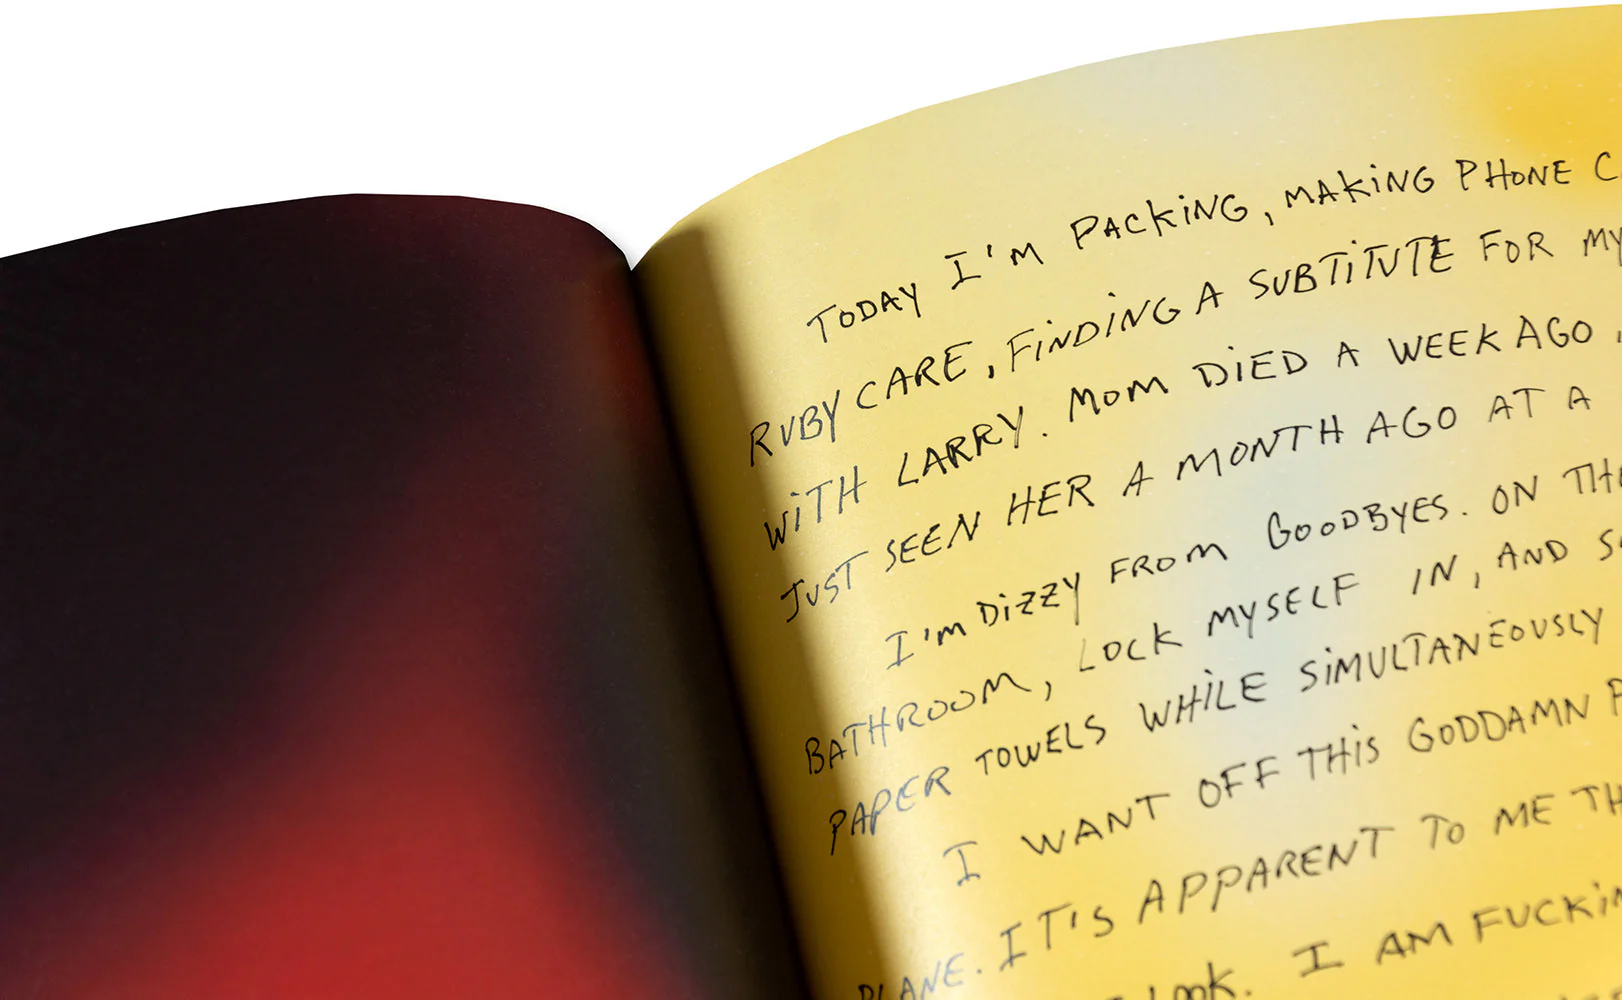 TODAY I'M PACKING, MAKING PHONE C
RUBY CARE, FINDING A SUBTITUTE FOR MY
WITH LARRY. MOM DIED A WEEK AGO,
JUST SEEN HER A MONTH AGO AT A
I'M DIZZY FROM GOODBYES. ON TH
BATHROOM, LOCK MYSELF IN, AND S
PAPER TOWELS WHILE SIMULTANEOUSLY
I WANT OFF THIS GODDAMN P
PLANE. IT'S APPARENT TO ME TH
LOOK. I AM FUCKIN